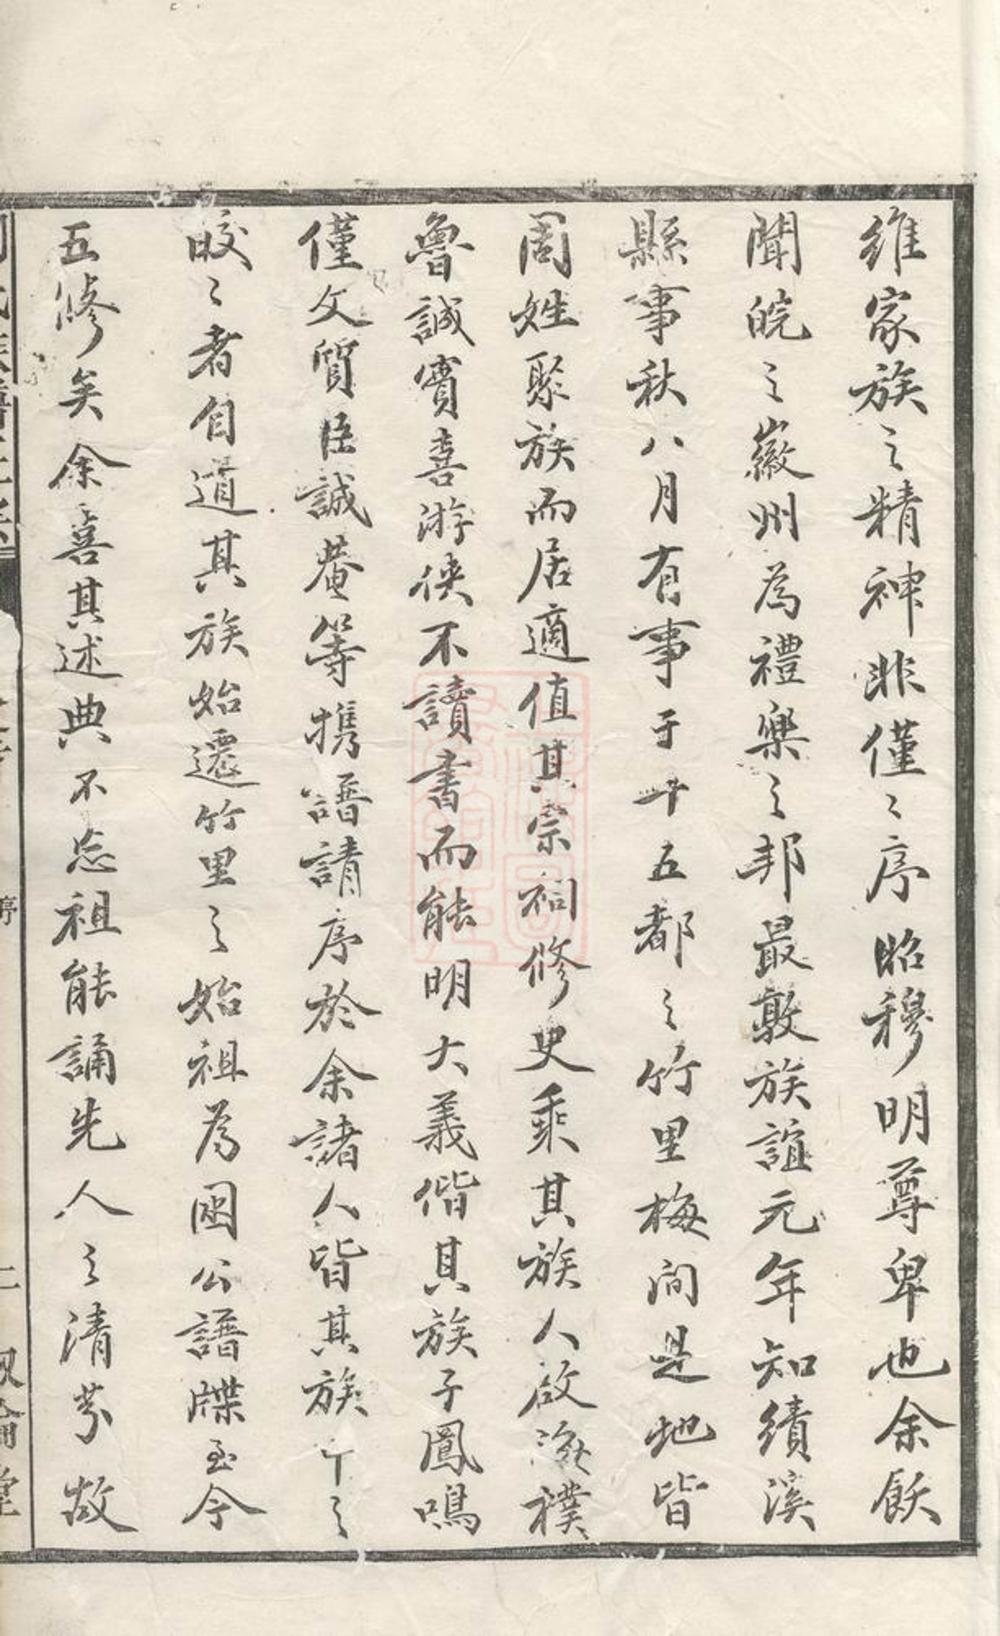 維家族之精神非僅〻序昭穆明尊卑也余飫
聞皖之徽州為禮樂之邦最敦族誼元年知績溪
縣事秋八月有事于十五都之竹里梅澗是地皆
周姓聚族而居適值其宗祠修史乘其族人啟瀛樸
魯誠實喜游俠不讀書而能明大義偕其族子鳳鳴
僅文質臣誠菴等攜譜請序於余諸人皆其族中之
皎〻者自道其族始遷竹里之始祖為囦公譜牒至今
五修矣余喜其述典不忘祖能誦先人之清芬故
序
二